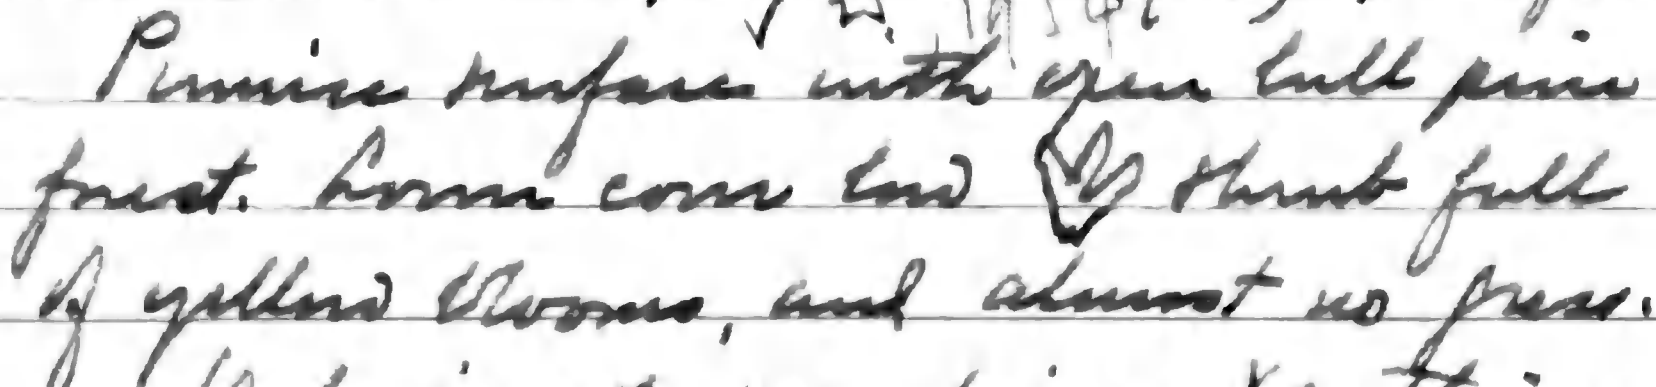 Pumice surface with open bull pine
forest. Loam com low shrub full
of yellow blooms, and almost no grass.